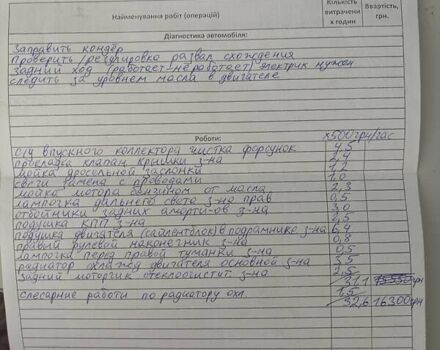 Найменування робіт (операцій) Кількість витрачених годин Вартість, грн.
Діагностика автомобіля:
Заправить кондёр
Проверить/регулировка развал схождения
Задний ход (работает-неработает) электрик нужен
следить за уровнем масла в двигателе
Роботи: х500грн/час
О/ч впускного коллектора чистка форсунок 4,5
прокладка клапан крышки з-на 2,4
мойка дросельной заслонки 1,2
свечи замена с проводами 1,0
мойка мотора бензином от масла 2,3
лампочка дальнего света з-на прав 0,5
отбойники задних аморти-ов з-на 3,0
подушка КПП з-на 2,5
подушка двигателя (сайлентблок) в подрамнике з-на 6,4
правый рулевой наконечник з-на 0,8
лампочка перед правой туманки з-на 0,5
радиатор охлажд двигателя основной з-на 3,5
Задний моторчик стеклоочистит з-на 2,5
31,1 15550грн
слесарные работы по радиатору охл. 1,5
32,6 16300грн